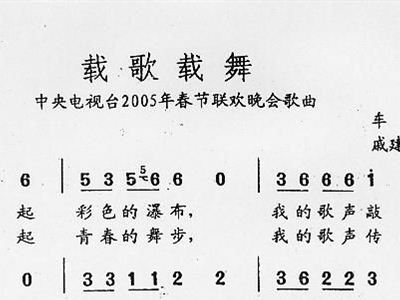 载歌载舞
中央电视台2005年春节联欢晚会歌曲
车
戚建
6 | 5 3 5 5 6 6 0 | 3 6 6 6 1
起 彩色的瀑布, 我的歌声敲
起 青春的舞步, 我的歌声传
0 | 3 3 1 1 2 2 | 3 6 2 2 3